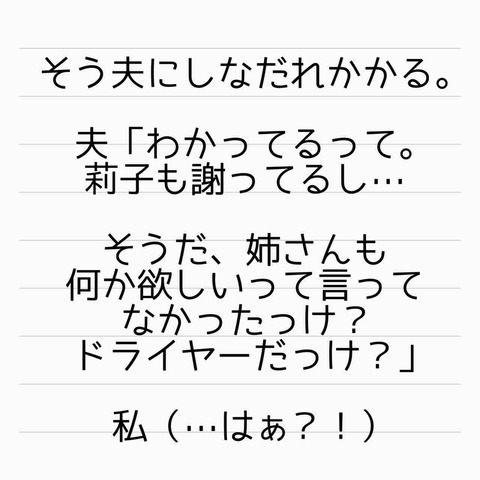 そう夫にしなだれかかる。
夫「わかってるって。
莉子も謝ってるし…
そうだ、姉さんも
何か欲しいって言って
なかったっけ？
ドライヤーだっけ？」
私（…はぁ？！）